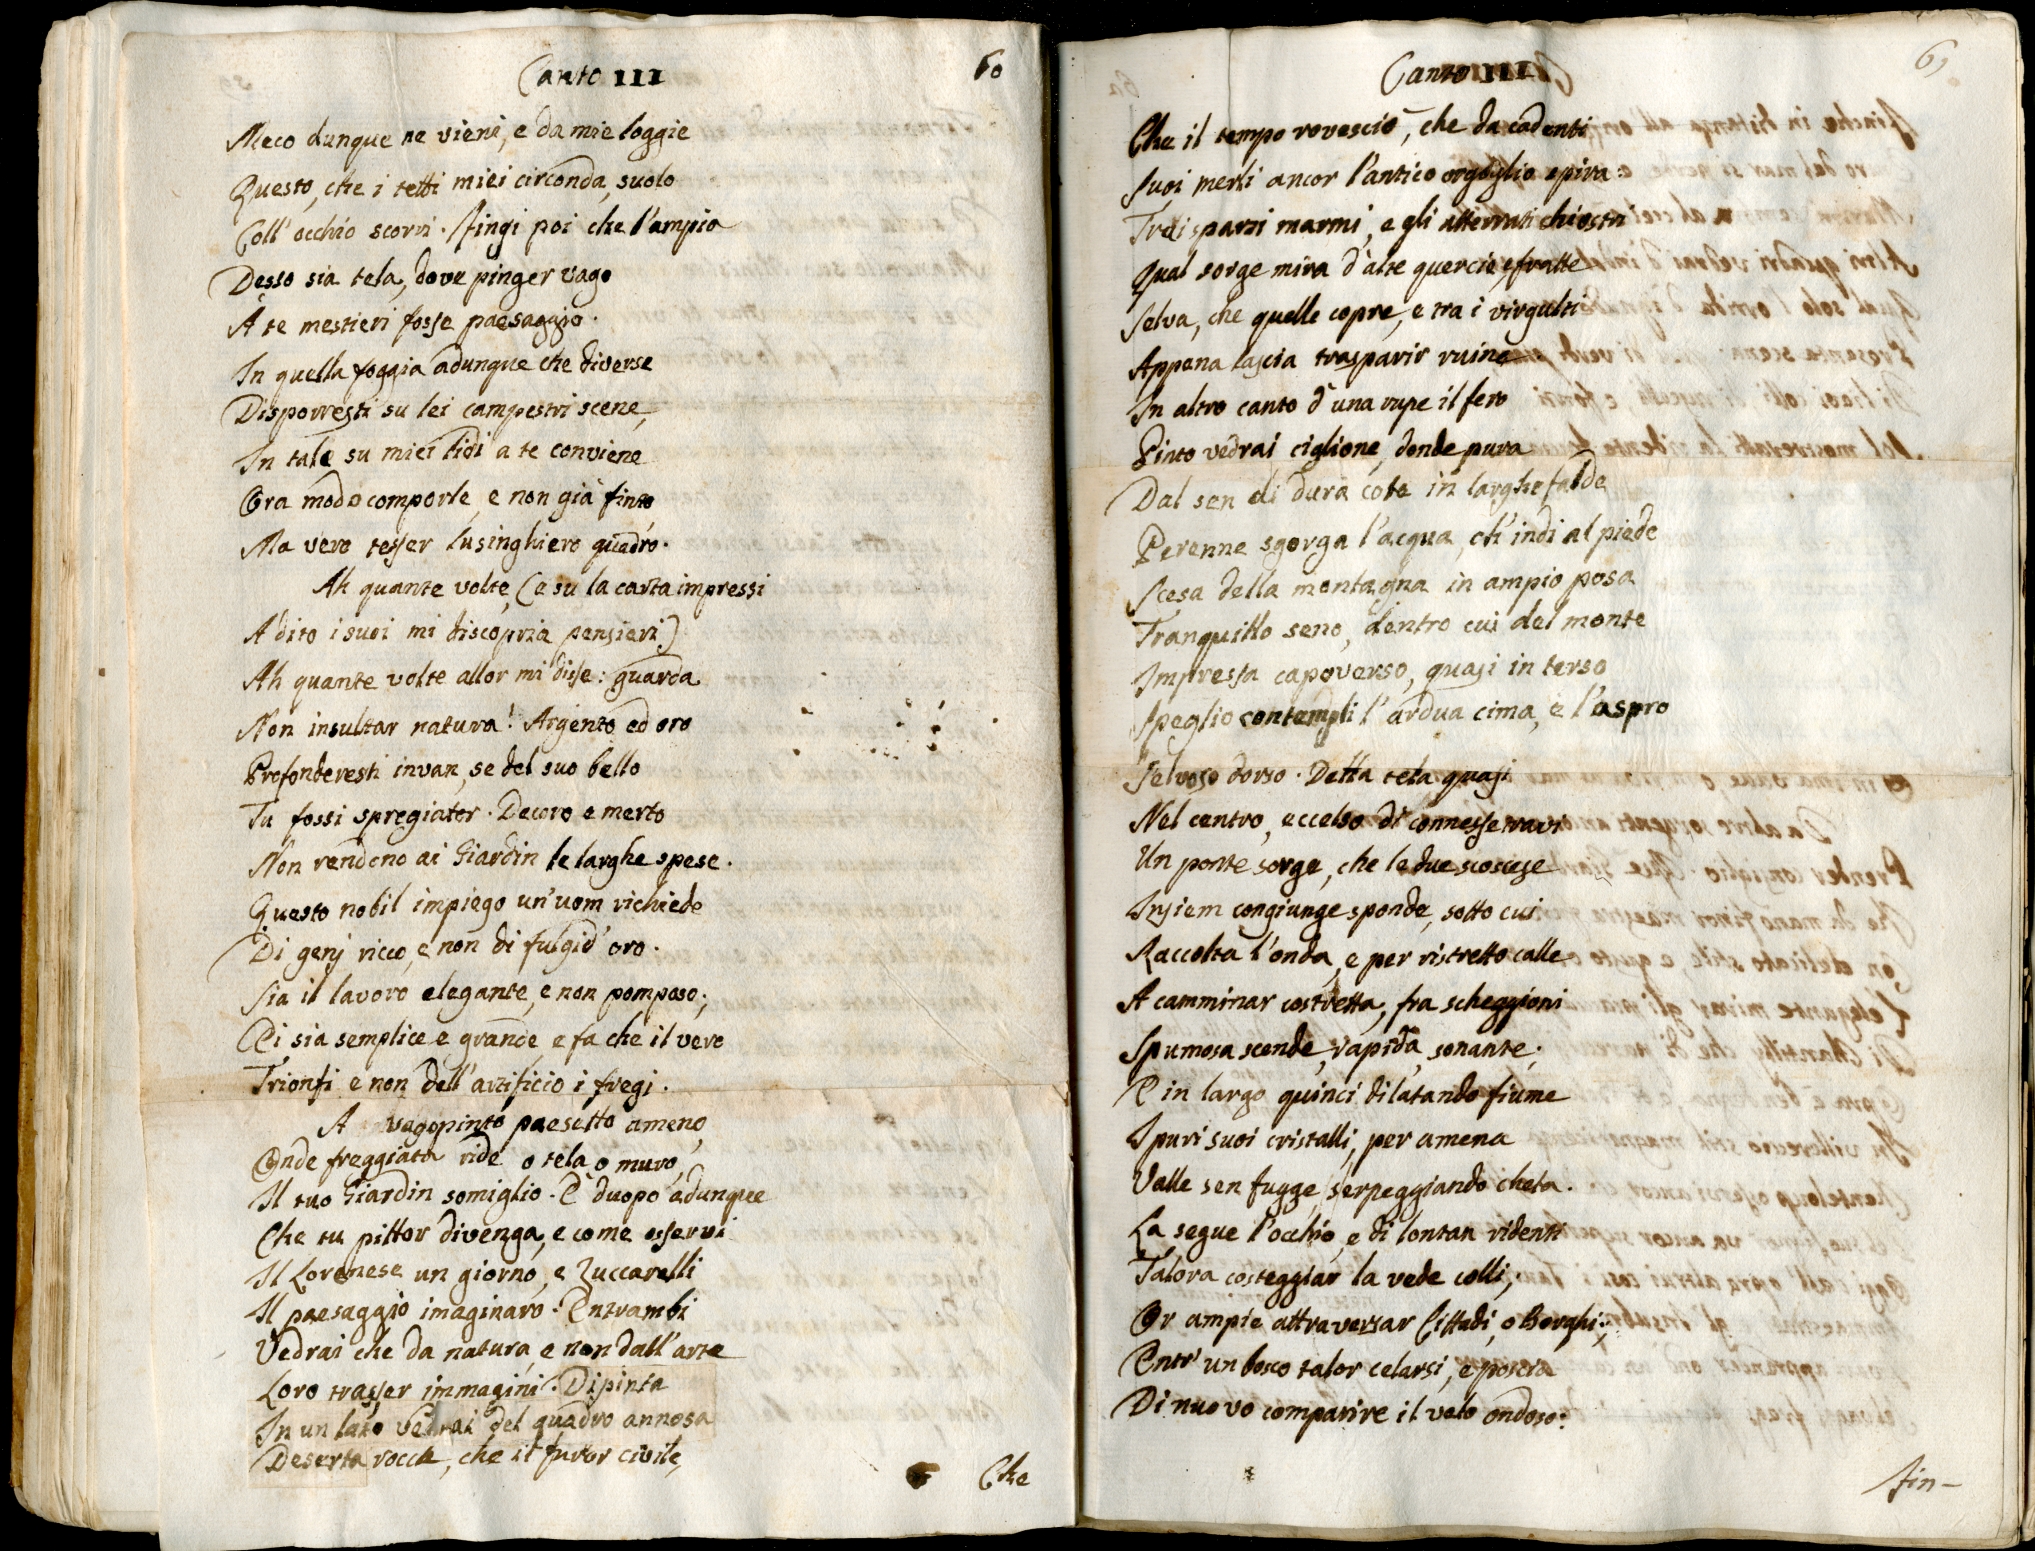 Canto III
60
Meco dunque ne vieni, e da mie loggie
Questo, che i tetti miei circonda, suolo
Coll' occhio scorri. Fingi poi che l'ampio
Desso sia tela, dove pinger vago
A te mestieri fosse paesaggio.
In quella foggia adunque che diverse
Disporresti su lei campestri scene,
In tale su miei lidi a te conviene
Ora modo comporle, e non già finto
Ma vero tesser lusinghiero quadro.
Ah quante volte, (e su la carta impressi
A dito i suoi mi discopria pensieri)
Ah quante volte allor mi disse: guarda
Non insultar natura! Argento ed oro
Profonderesti invan, se del suo bello
Tu fossi spregiator. Decoro e merto
Non rendono ai Giardin le larghe spese.
Questo nobil impiego un' uom richiede
Di genj ricco, e non di fulgid' oro.
Sia il lavoro elegante, e non pomposo;
Ei sia semplice e grande e fa che il vero
Trionfi e non dell' artificio i fregi.
A vago pinto paesetto ameno,
Onde freggiata ride o tela o muro,
Il tuo Giardin somiglio. È duopo adunque
Che tu pittor divenga, e come osservi
Il Lorenese un giorno, e Zuccarelli
Il paesaggio imaginaro. Entrambi
Vedrai che da natura, e non dall' arte
Loro trasser immagini. Dipinta
In un lato vedrai del quadro annosa
Deserta rocca, che il furor civile,
Che
Canto III
61
Che il tempo rovesciò, che da cadenti
Suoi merli ancor l'antico orgoglio spira:
Tra i sparsi marmi, e gli atterrati chiostri
Qual sorge mira d'alte quercie, e fratte
Selva, che quelle copre, e tra i virgulti
Appena lascia trasparir ruine
In altro canto d'una rupe il fero
Pinto vedrai ciglione, donde pura
Dal sen di dura cote in larghe falde
Perenne sgorga l'acqua, ch' indi al piede
Scesa della montagna in ampio posa
Tranquillo seno, dentro cui del monte
Impressa capoverso, quasi in terso
Speglio contempli l'ardua cima, e l'aspro
Selvoso dorso. Della tela quasi
Nel centro, eccelso di connesse travi
Un ponte sorge, che le due scoscese
Insiem congiunge sponde, sotto cui
Raccolta l'onda, e per ristretto calle
A camminar costretta, fra scheggioni
Spumosa scende, rapida, sonante;
E in largo quinci dilatando fiume
I puri suoi cristalli, per amena
Valle sen fugge, serpeggiando cheta.
La segue l'occhio, e di lontan ridenti
Talora costeggiar la vede colli,
Or ampie attraversar Cittadi, o Borghi;
Entr' un bosco talor celarsi, e poscia
Di nuovo comparire il velo ondoso:
Fin-